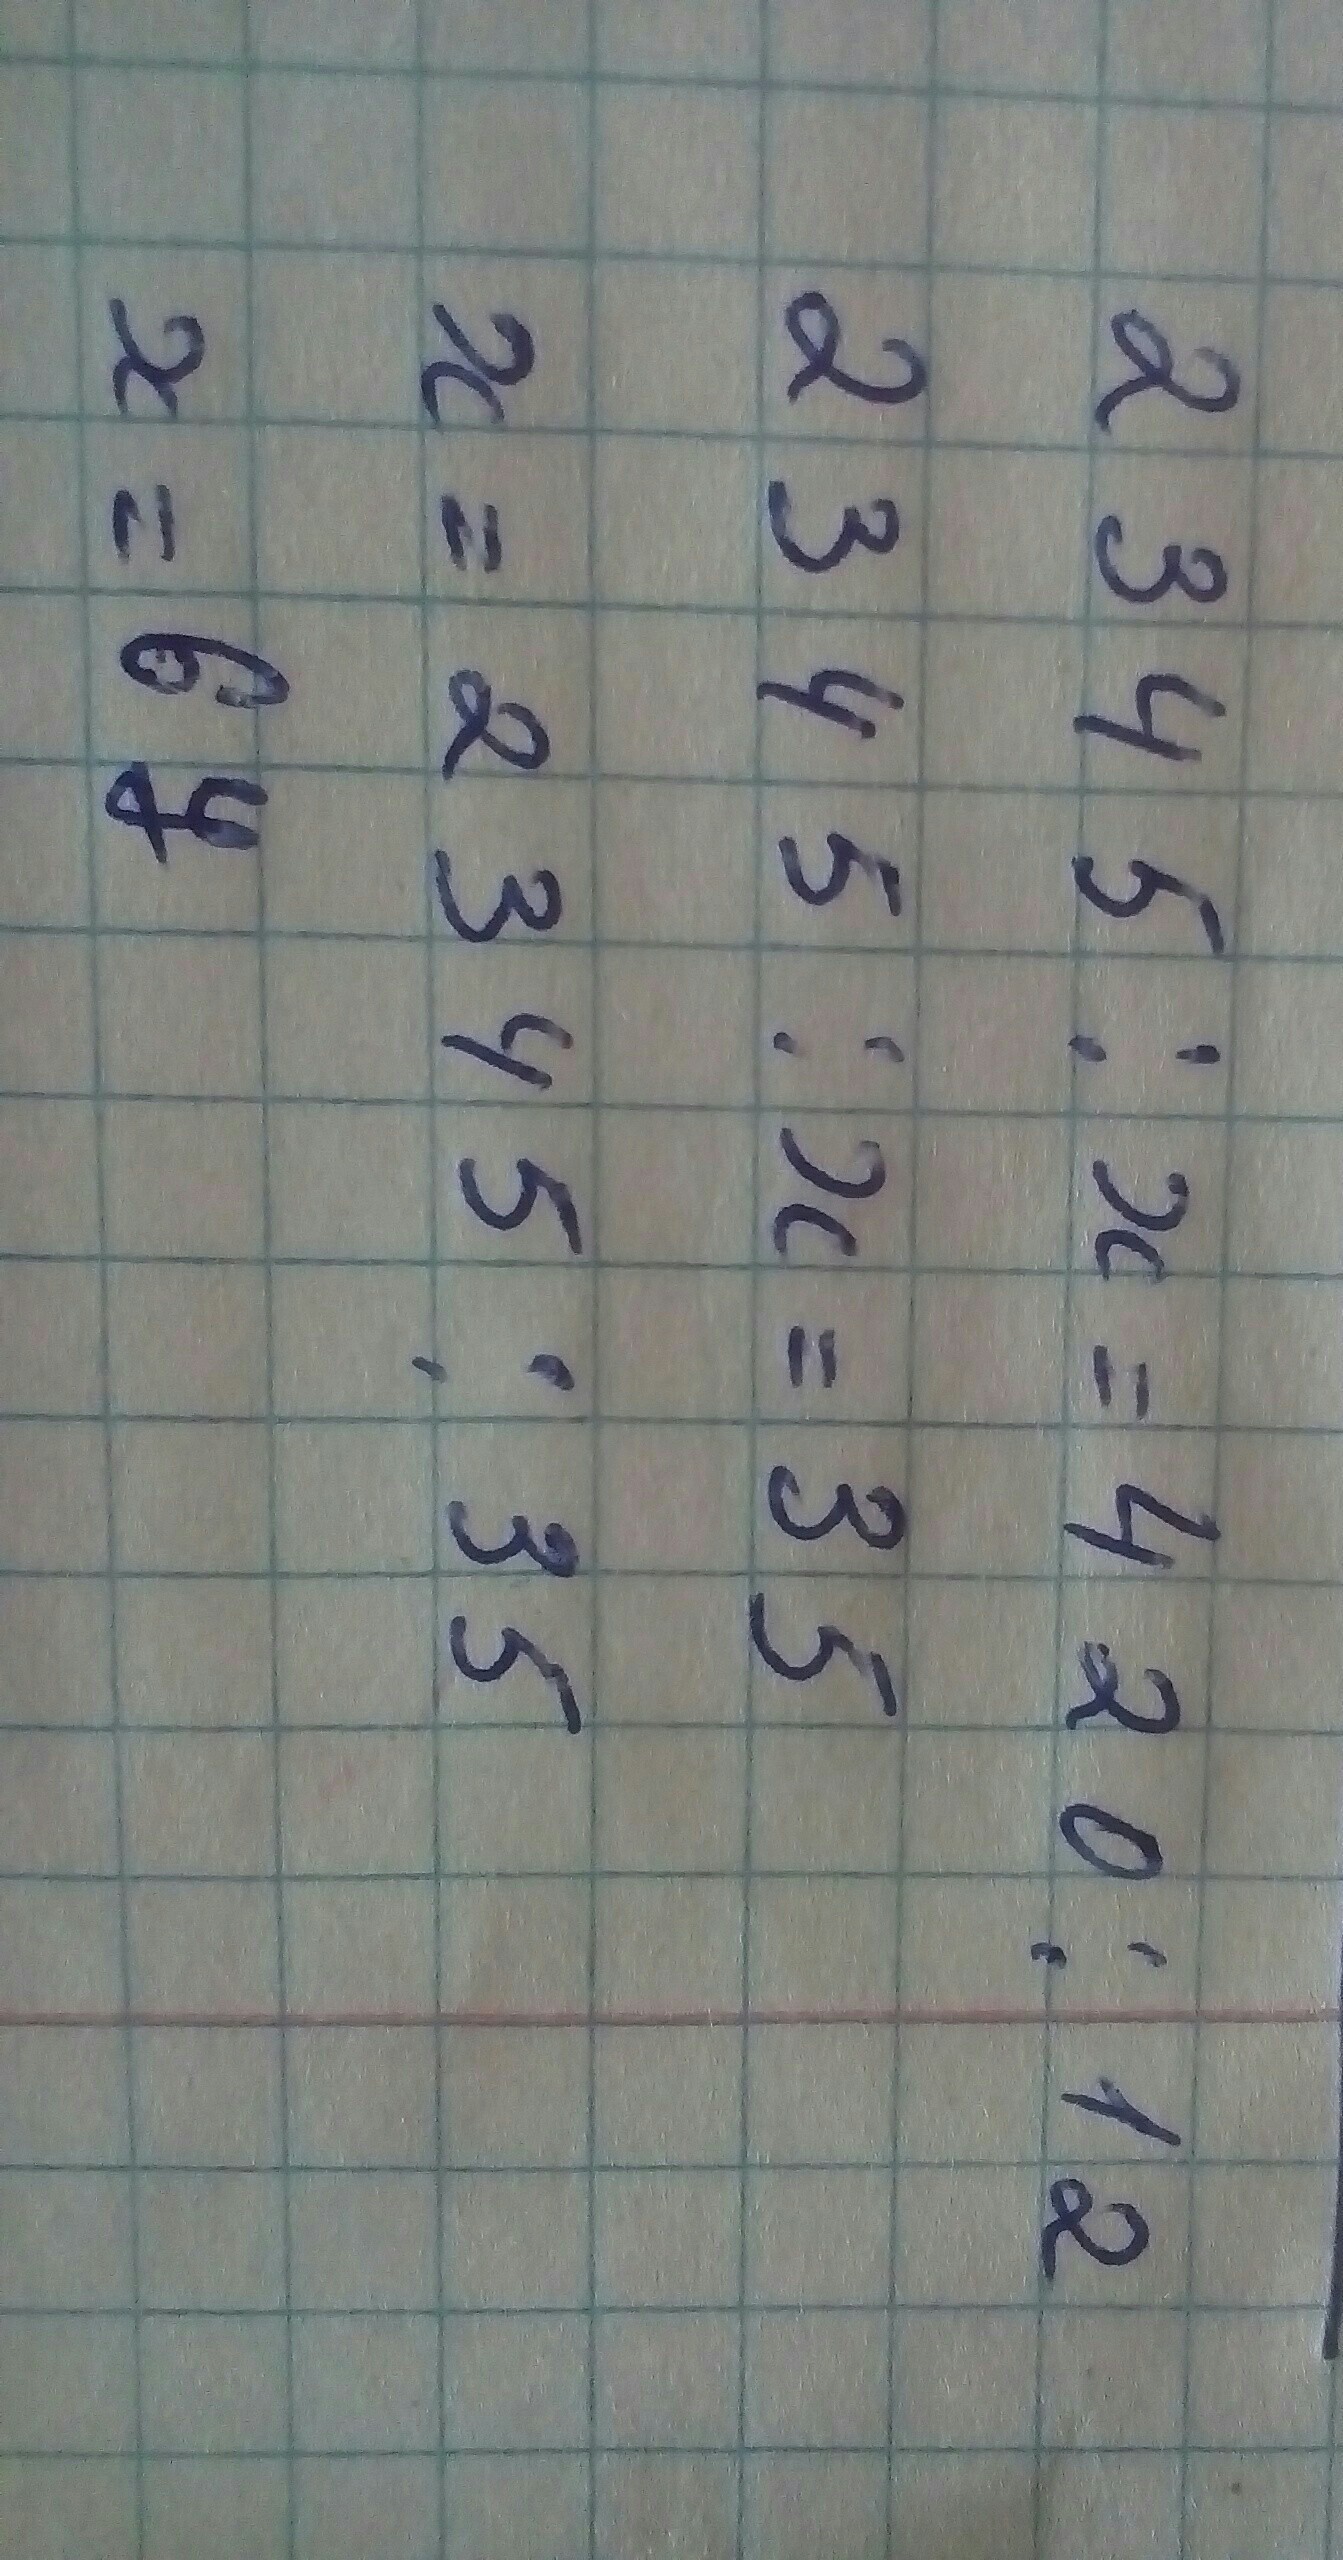 2345:x=420:12
2345:x=35
x=2345:35
x=67